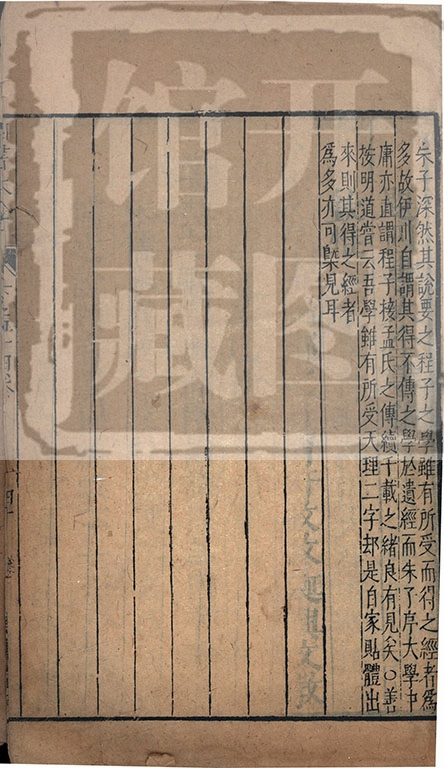 朱子深然其說要之程子之學雖有所受而得之經者爲
多故伊川自謂其得不傳之學於遺經而朱子序大學中
庸亦直謂程子接孟氏之傳續千載之緒良有見矣○善
按明道嘗云吾學雖有所受天理二字却是自家貼體出
來則其得之經者
爲多亦可槩見耳
开图
馆藏